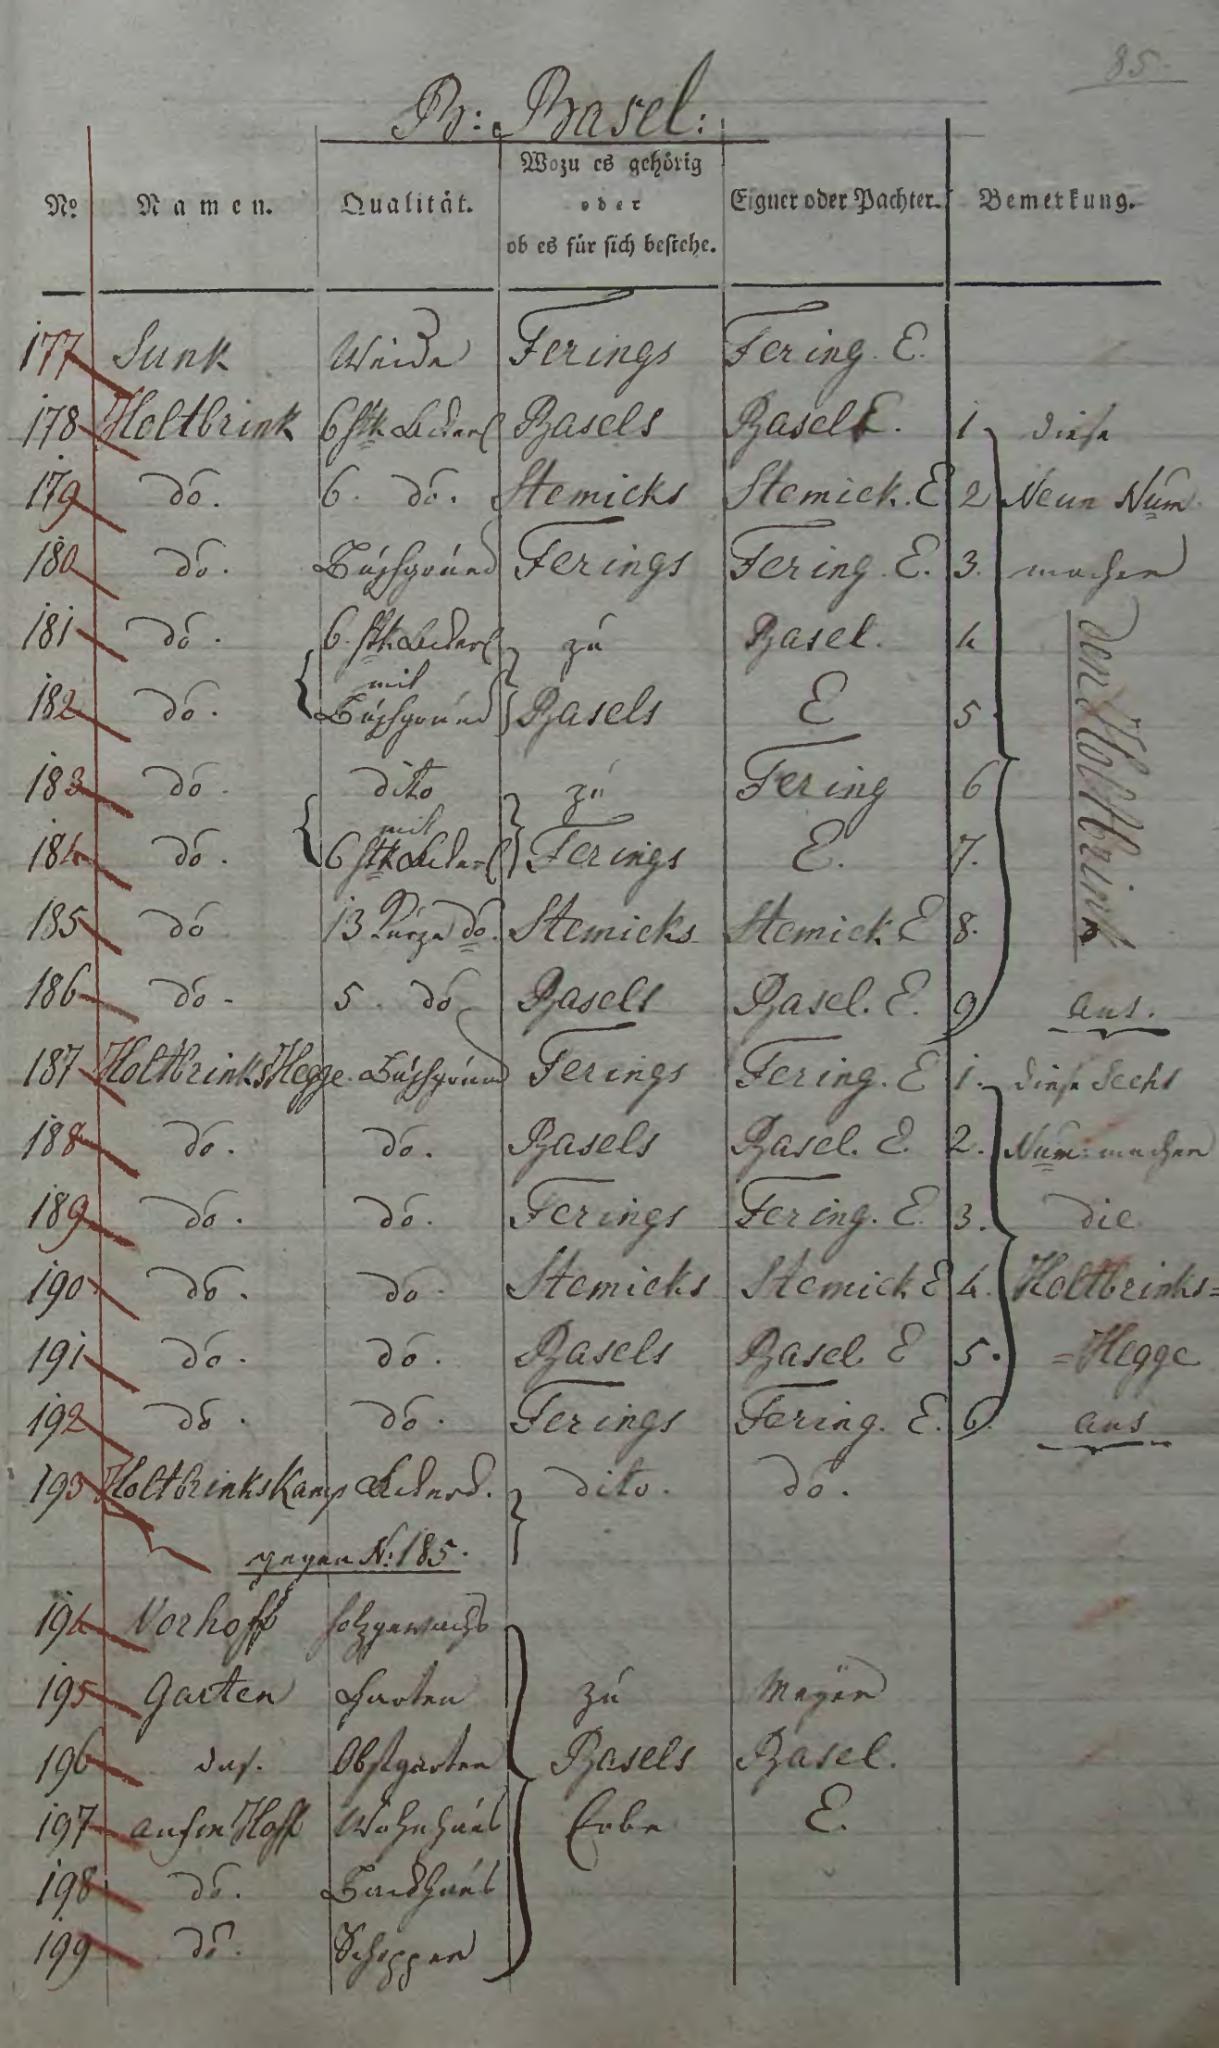 85.
B: Basel:
No. Namen. Qualität. Wozu es gehörig oder ob es für sich bestehe. Eigner oder Pachter. Bemerkung.
177 Sunk Weide Ferings Fering. E.
178 Holtbrink 6 Stk. Ackerl Basels Basel E. 1. diese
179 do. 6. do. Stemicks Stemick. E 2 Neun Num.
180 do. Buschgrund Ferings Fering. E. 3. machen
181 do. 6. Stk. Ackerl zu Basel. 4 den Holtbrink
mit
182 do. Buschgrund Basels E 5.
183 do. dito zu Fering 6
mit
184 do. 6 Stk. Ackerl Ferings E. 7.
185 do 13 Kurze do. Stemicks Stemick E 8.
186 do. 5. do Basels Basel. E. 9 aus.
187 Holtbrinks Hegge. Buschgrund Ferings Fering. E 1. diese Sechs
188 do. do. Basels Basel. E. 2. Num: machen
189 do. do. Ferings Fering. E. 3. die
190 do. do. Stemicks Stemick E 4. Holtbrinks=
191 do. do. Basels Basel. E 5. =Hegge
192 do. do. Ferings Fering. E. 6. aus
193 Holtbrinks Kamp Ackerl. dito. do.
gegen No. 185.
194 Vorhoff Holzgewachs
195 Garten Garten zu Meyer
196 das. Obstgarten Basels Basel.
197 aufm Hoff Wohnhaus Erbe E.
198 do. Backhaus
199 do. Schoppen